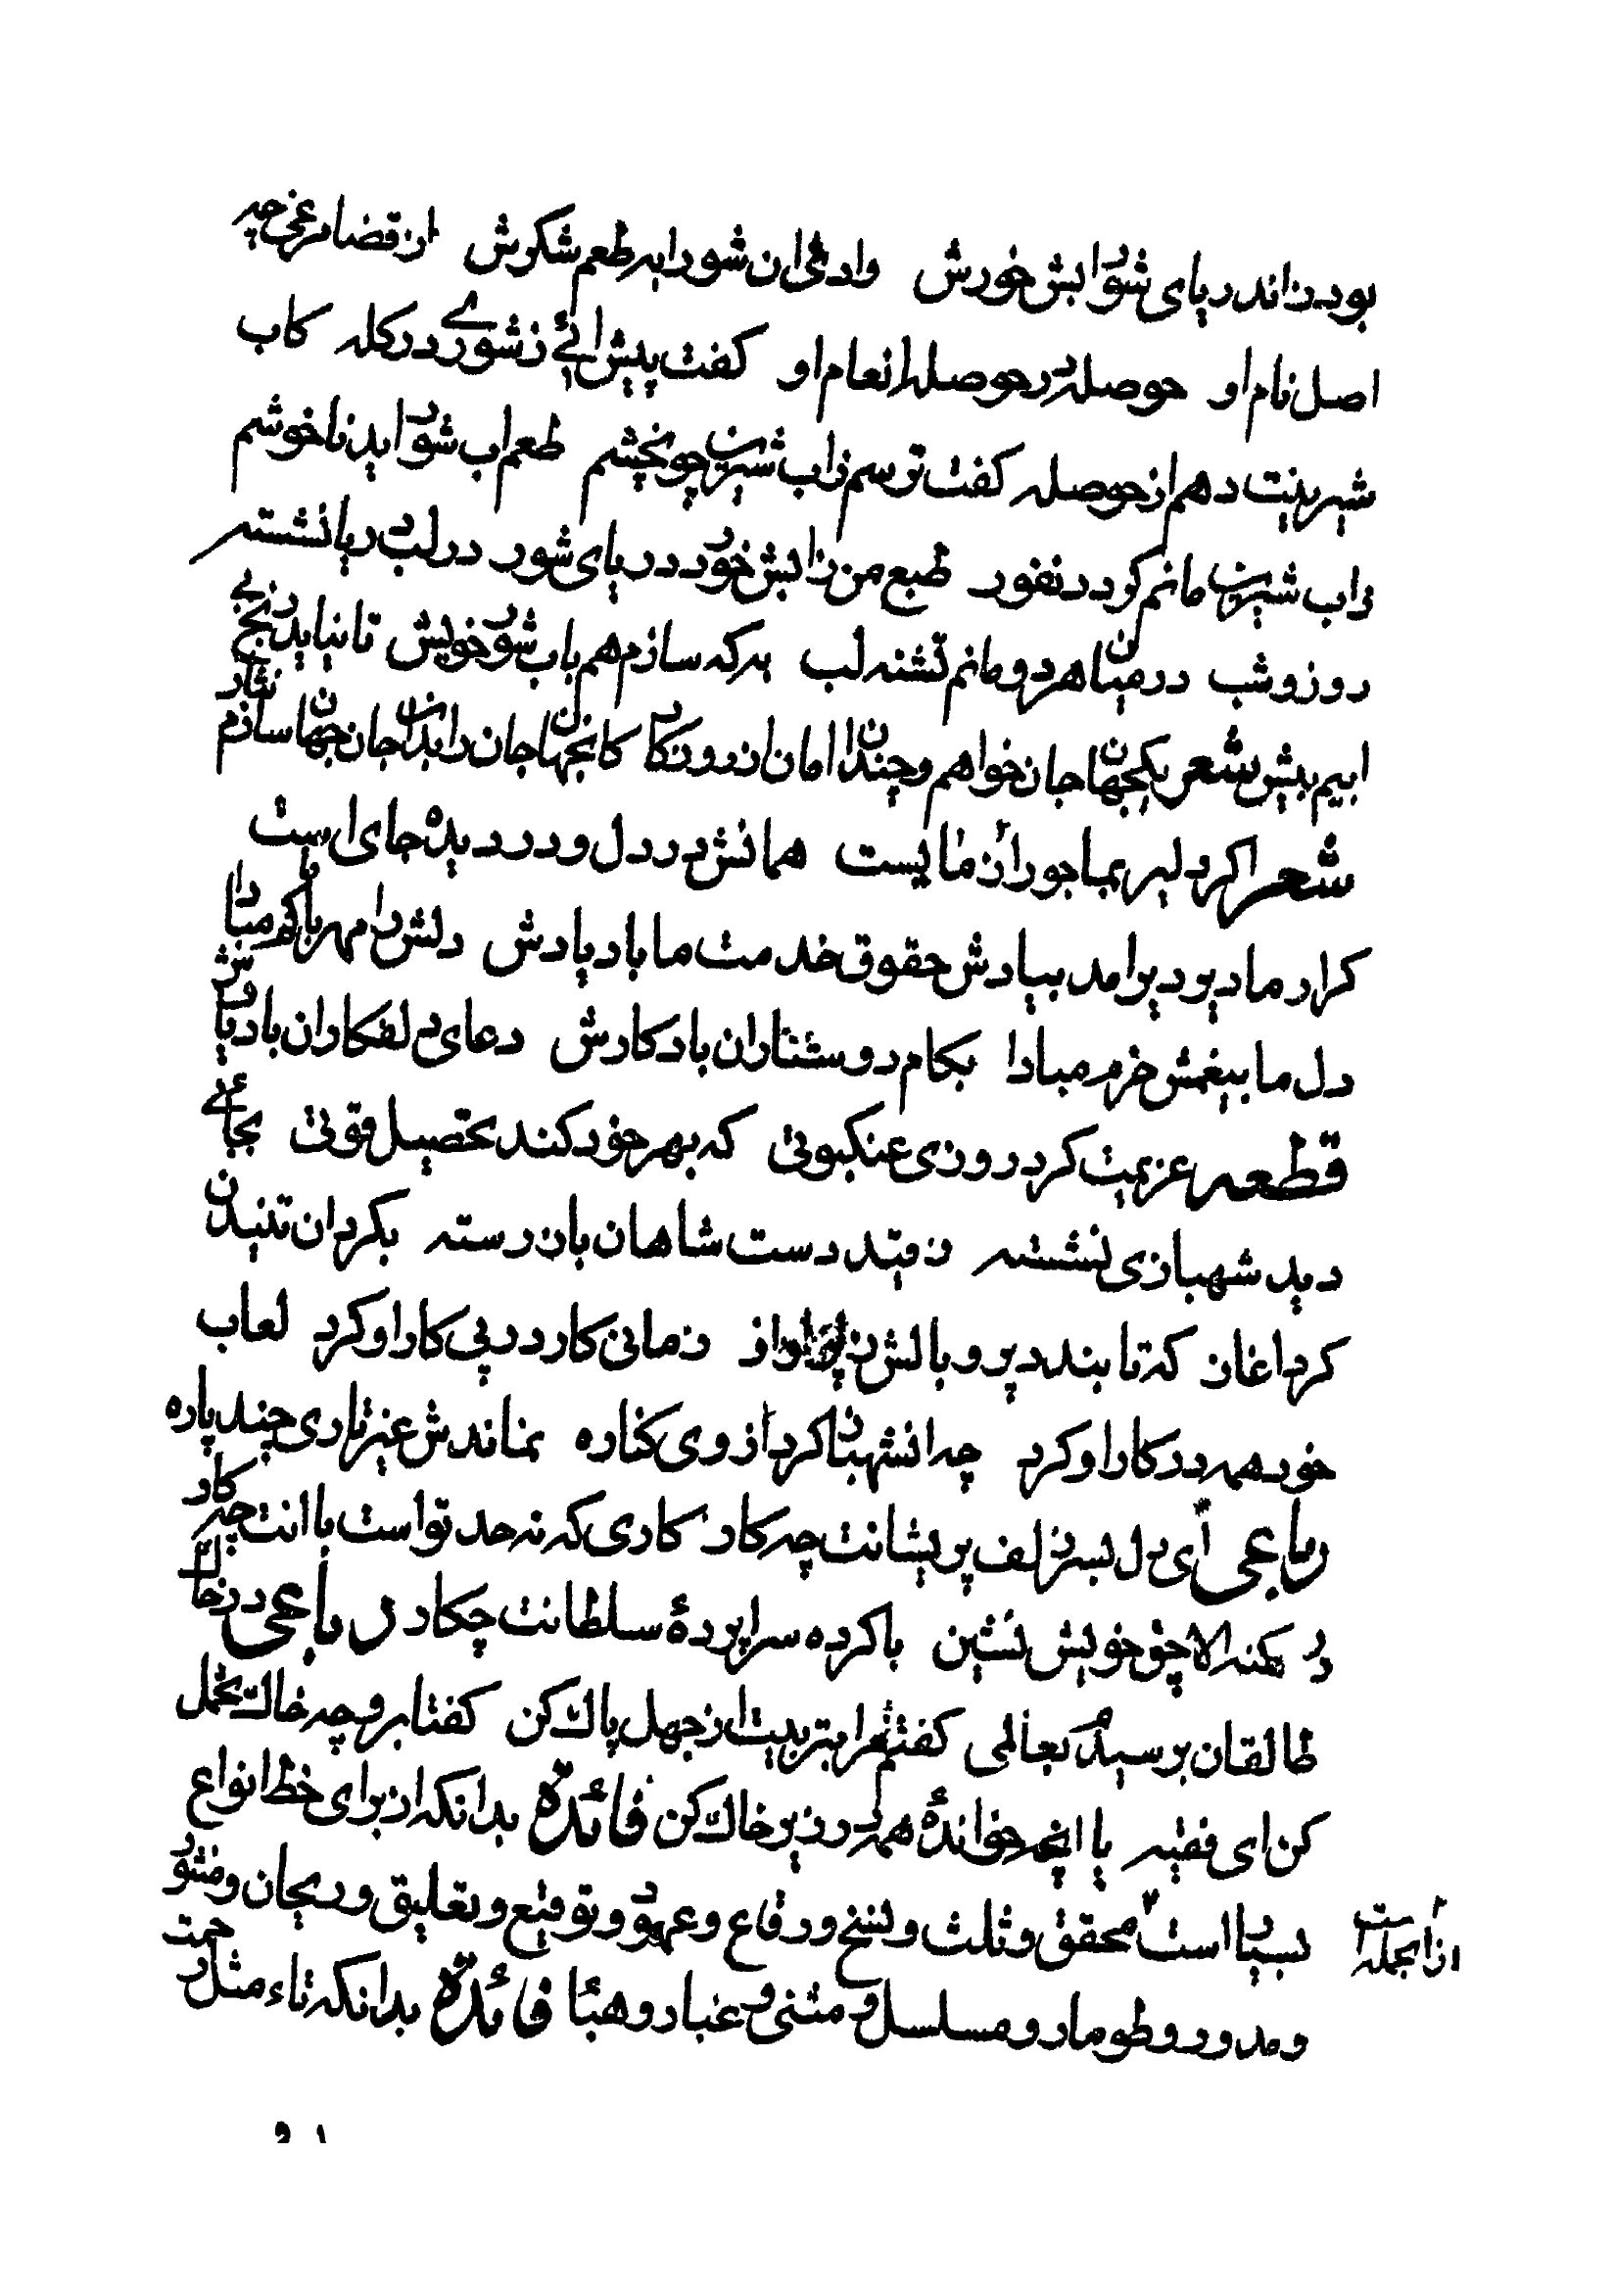 بود ز اندریای شور ابش خورش وادی ان شورابه طعم شکرش از قضا مرغی چه
اصل نام او حوصله در حوصله انعام او کفت پیش ائی ز شورے در کله کاب
شیرینت دهم از حوصله کفت ترسم ز اب شیرین چون چشم طعم اب شور اید ناخوشم
ز اب شیرین مانم کردد نفور طبع من ز ابش خور دریای شور در لب دریا نشسته
روز و شب در میان هر دو مانم تشنه لب به که سازم هم باب شور خویش تا نیاید رنج بے
ابیم پیش شعر یکجهان جان خواهم و چندان امان از روزکار کانجهان جان را بدان جان جهان سازم نثار
شعر اکر دلبر بما جورآزمایست همانش در دل و در دیده جای است
کر ار ما دیر دیر امد بیادش حقوق خدمت ما باد یادش دلش را مهر با کم مبادا
دل ما بیغمش خرم مبادا بکام دوستداران باد کارش دعای دلفکاران باد یارش
قطعه عزیمت کرد روزی عنکبوتی که بهر خود کند تحصیل قوتی بجائے
دید شهبازی نشسته ز قید دست شاهان باز رسته بکرد ان تنیدن
کرد اغاز که تا بندد پر و بالش ز پرواز زمانی کار در پی کار او کرد لعاب
خود همه در کار او کرد چه ان شهباز کرد از وی کناره نماندش غیر تاری چند پاره
رباعی ای دل بسر زلف پریشانت چه کار کاری که نه حد تو است با انت چه کار
در کهنه الاچق خویش نشین با کرده سراپردۀ سلطانت چکار رباعی در خاک
طالقان برسیدم بعالمی کفتم مرا بتربیت از جهل پاک کن کفتا برو چه خاک تحمل
کن ای فقیه یا انچه خواندۀ همه در زیر خاک کن فائده بدانکه از برای خط انواع
بسیار است محقق و ثلث و نسخ و رقاع و عهود و توقیع و تعلیق و ریحان و منثور
از انجمله است
و مدور و طومار و مسلسل و مثنی و غبار و هبا فائده بدانکه تاء مثل رحمت